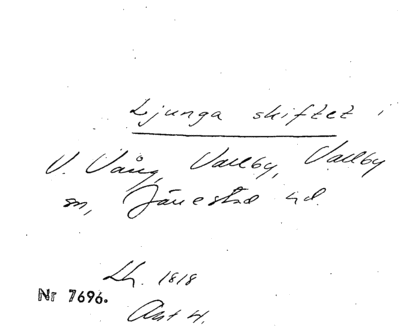 Ljunga skiftet i
V. Vång, Vallby, Vallby
sn, Järrestad hd.
Lh. 1818
Nr 7696.
Akt 4.